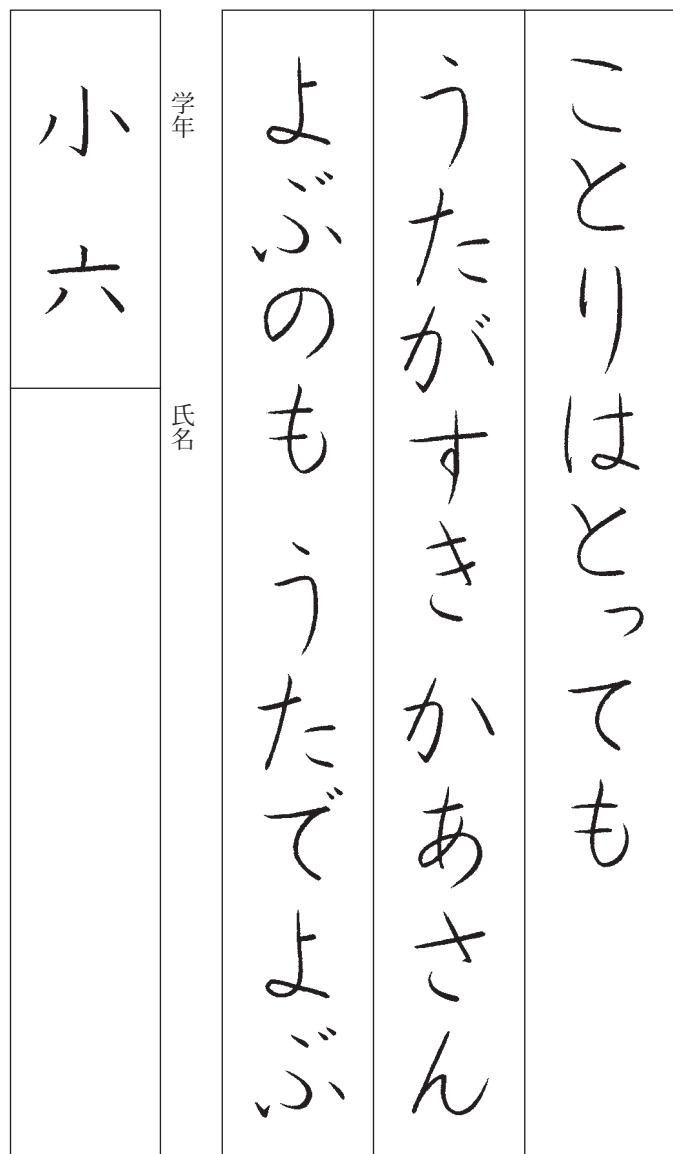 ことりはとっても
うたがすき かあさん
よぶのも うたでよぶ
学年
小六
氏名